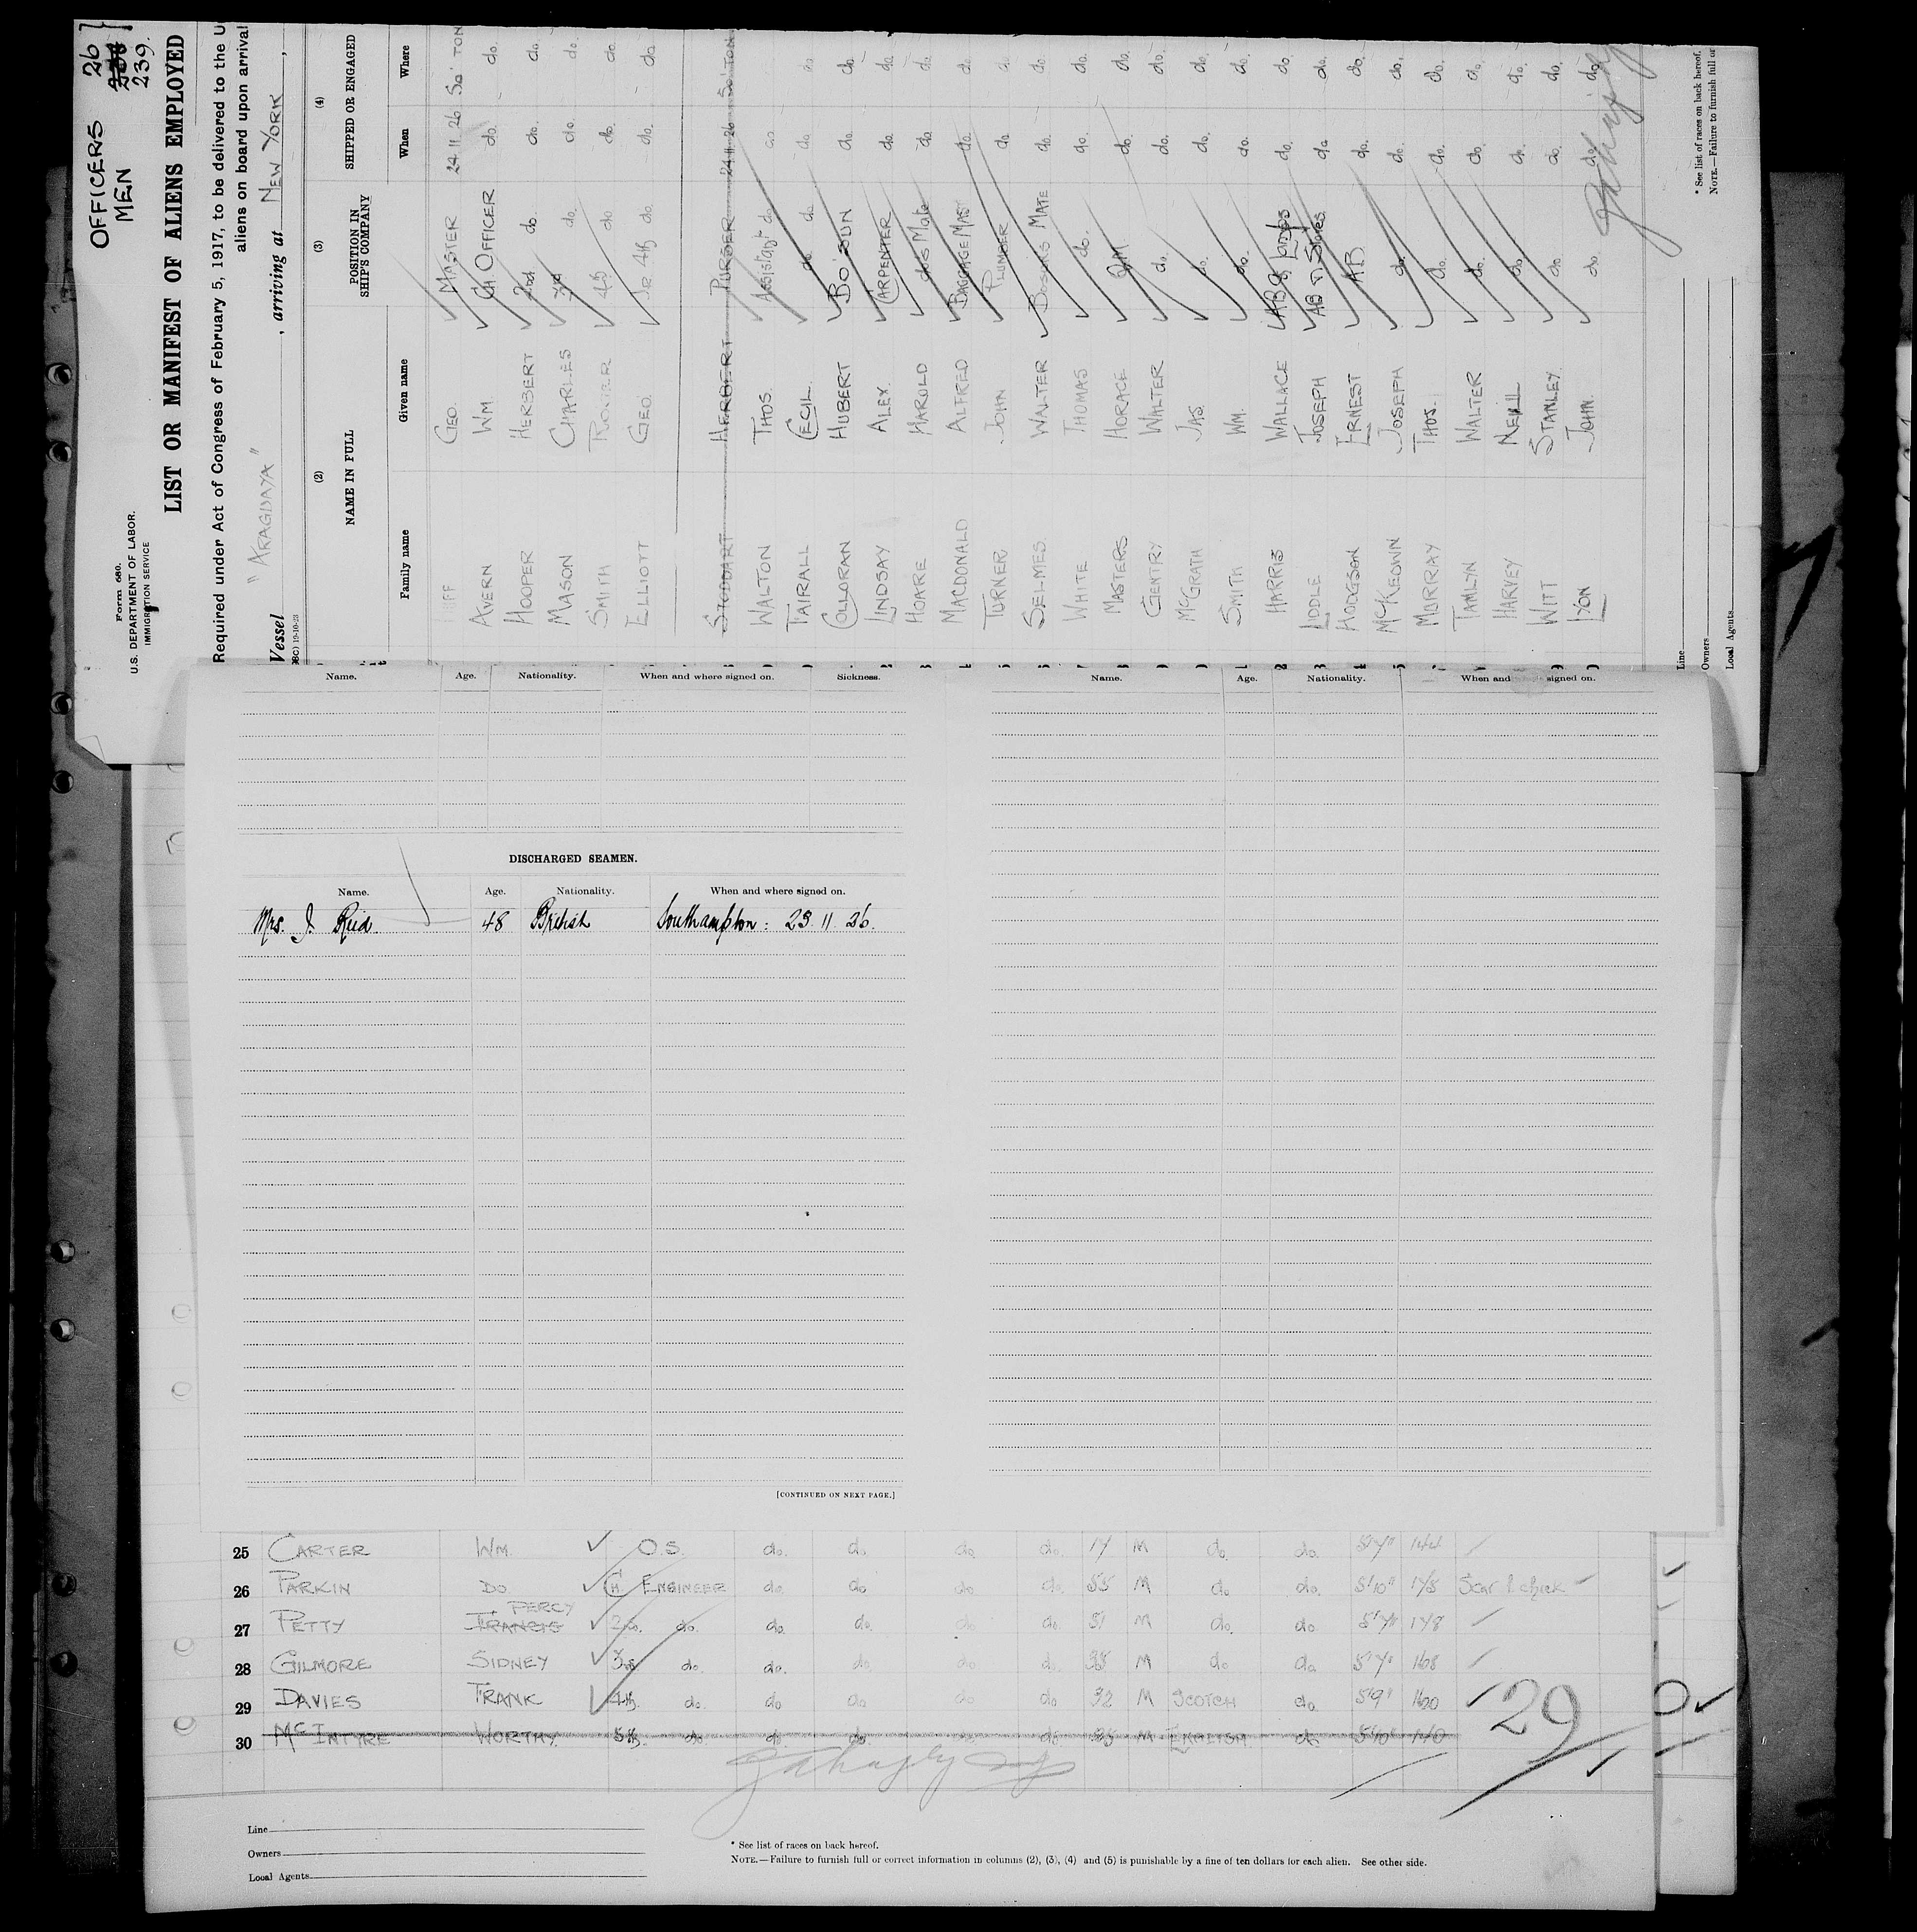 OFFICERS 26
MEN 239.
Form 680.
U.S. DEPARTMENT OF LABOR.
IMMIGRATION SERVICE
LIST OR MANIFEST OF ALIENS EMPLOYED
Required under Act of Congress of February 5, 1917, to be delivered to the U
aliens on board upon arrival
Vessel "ARAGUAYA" , arriving at NEW YORK ,
(2) (3) (4)
NAME IN FULL POSITION IN SHIP'S COMPANY SHIPPED OR ENGAGED
Family name Given name When Where
IFF GEO. MASTER 24 11 26 So'TON
AVERN WM. CH. OFFICER do. do.
HOOPER HERBERT 2nd do do. do.
MASON CHARLES 3rd do. do. do.
SMITH 4th do do. do.
ELLIOTT GEO. Jr. 4th do. do. do
STODDART HERBERT PURSER 24 11 26 So'TON
WALTON THOS. Assistant do do
FAIRALL CECIL do do do. do
COLLORAN HUBERT BO'SUN do. do.
LINDSAY ALEX CARPENTER do. do
HOARE HAROLD do's Mate do do
MACDONALD ALFRED BAGGAGE MAST do. do.
TURNER JOHN PLUMBER do do.
SELMES WALTER BOSUNS MATE do. do.
WHITE THOMAS do. do. do.
MASTERS HORACE QM do. do.
GENTRY WALTER do. do. do.
McGRATH JAS. do. do. do.
SMITH WM. do. do. do.
HARRIS WALLACE AB & Lamps do. do.
LODDLE JOSEPH AB & Stores do do.
HODGSON ERNEST AB do. do.
McKEOWN JOSEPH do. do. do.
MURRAY THOS. do. do. do.
TAMLYN WALTER do. do. do.
HARVEY NEILL do. do. do.
WITT STANLEY do do. do.
LYON JOHN do. do. do.
Line
Owners
Local Agents
* See list of races on back hereof.
NOTE.—Failure to furnish full or
Name. Age. Nationality. When and where signed on. Sickness. Name. Age. Nationality. When and signed on.
DISCHARGED SEAMEN.
Name. Age. Nationality. When and where signed on.
Mrs. J. Reid. 48 British Southampton: 23. 11. 26.
[CONTINUED ON NEXT PAGE.]
25 CARTER WM. O.S. do. do. do. do. 17 M do. do. 5'7" 144
26 PARKIN DO CH. ENGINEER do. do do. do. 55 M do do. 5'10" 175 Scar R cheek
27 PETTY FRANCIS PERCY 2nd. do. do. do. do 51 M do. do 5'7" 178
28 GILMORE SIDNEY 3rd do. do. do do do. 35 M do do 5'7" 168
29 DAVIES FRANK 4th. do. do do do do 32 M SCOTCH do. 5'9" 160
30 McINTYRE WORTHY. 5th. do. do. do. do. 25 M ENGLISH do. 5'10" 140
29
Line
Owners
Local Agents
* See list of races on back hereof.
NOTE.—Failure to furnish full or correct information in columns (2), (3), (4) and (5) is punishable by a fine of ten dollars for each alien. See other side.